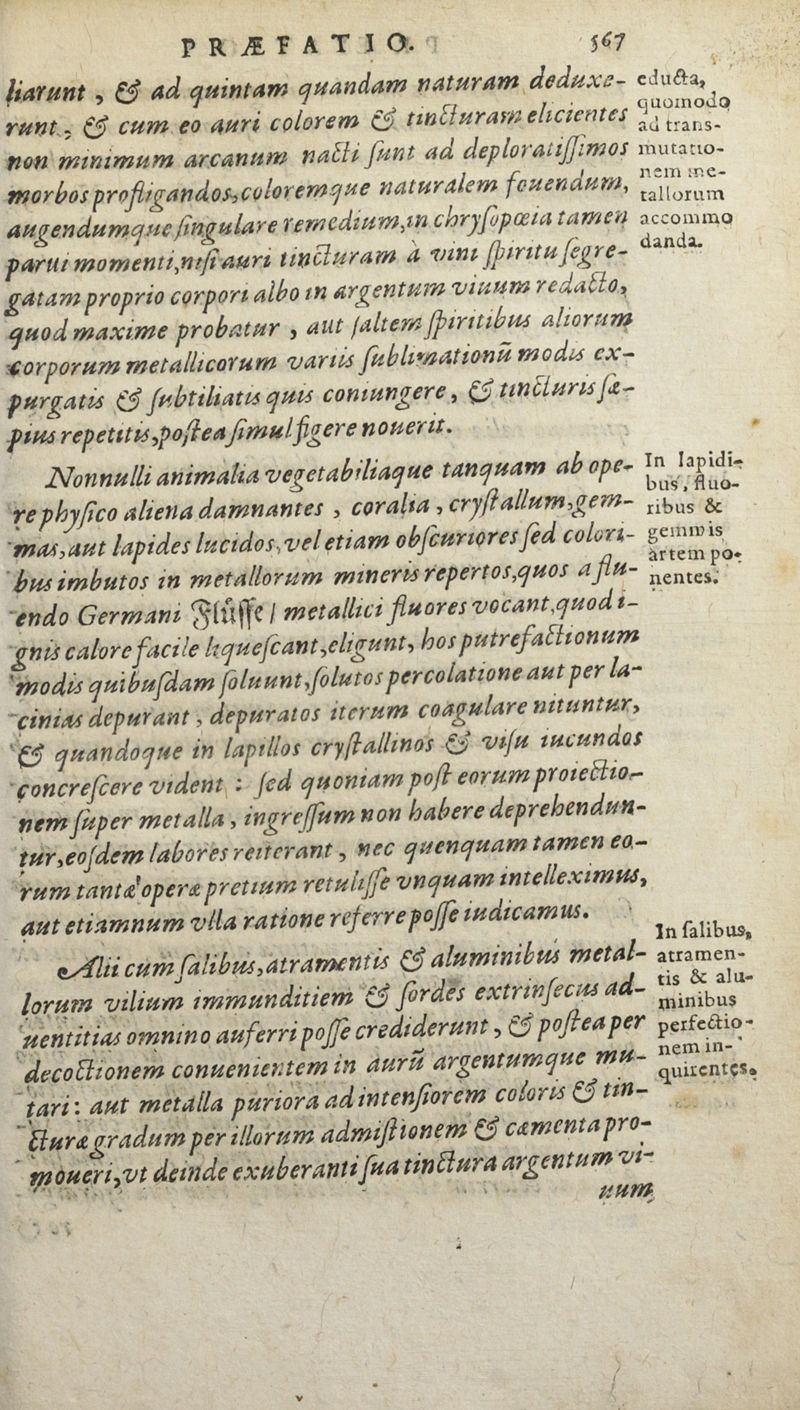 PRÆFATIO. 567
liarunt, & ad quintam quandam naturam deduxe-
runt, & cum eo auri colorem & tincturam elicientes
non minimum arcanum nacti sunt ad deploratissimos
morbos profligandos, coloremque naturalem fouendum,
augendumque singulare remedium, in chrysopœia tamen
parui momenti, nisi auri tincturam à vini spiritu segre-
gatam proprio corpori albo in argentum viuum redacto,
quod maxime probatur, aut saltem spiritibus aliorum
corporum metallicorum variis sublimationū modis ex-
purgatis & subtiliatis quis coniungere, & tincturis sæ-
pius repetitis, postea simul figere nouerit.
edu&a,
quomodo
ad trans-
mutatio-
nem me-
tallorum
accommo
danda.
Nonnulli animalia vegetabiliaque tanquam ab ope-
re physico aliena damnantes, coralia, crystallum, gem-
mas, aut lapides lucidos, vel etiam obscuriores sed colori-
bus imbutos in metallorum mineris repertos, quos a flu-
endo Germani Flüsse / metallici fluores vocant, quod i-
gnis calore facile liquescant, eligunt, hos putrefactionum
modis quibusdam soluunt, solutos percolatione aut per la-
cinias depurant, depuratos iterum coagulare nituntur,
& quandoque in lapillos crystallinos & visu iucundos
concrescere vident: sed quoniam post eorum proiectio-
nem super metalla, ingressum non habere deprehendun-
tur, eosdem labores reiterant, nec quenquam tamen eo-
rum tantæ operæ pretium retulisse vnquam intelleximus,
aut etiamnum vlla ratione referre posse iudicamus.
In lapidi-
bus, fluo-
ribus &
gemmis
artem po-
nentes.
Alii cum salibus, atramentis & aluminibus metal-
lorum vilium immunditiem & sordes extrinsecus ad-
uentitias omnino auferri posse crediderunt, & postea per
decoctionem conuenientem in aurū argentumque mu-
tari: aut metalla puriora ad intensiorem coloris & tin-
cturæ gradum per illorum admistionem & cæmenta pro-
moueri, vt deinde exuberanti sua tinctura argentum vi-
uum
In salibus,
atramen-
tis & alu-
minibus
perfectio-
nem in-
quirentes.